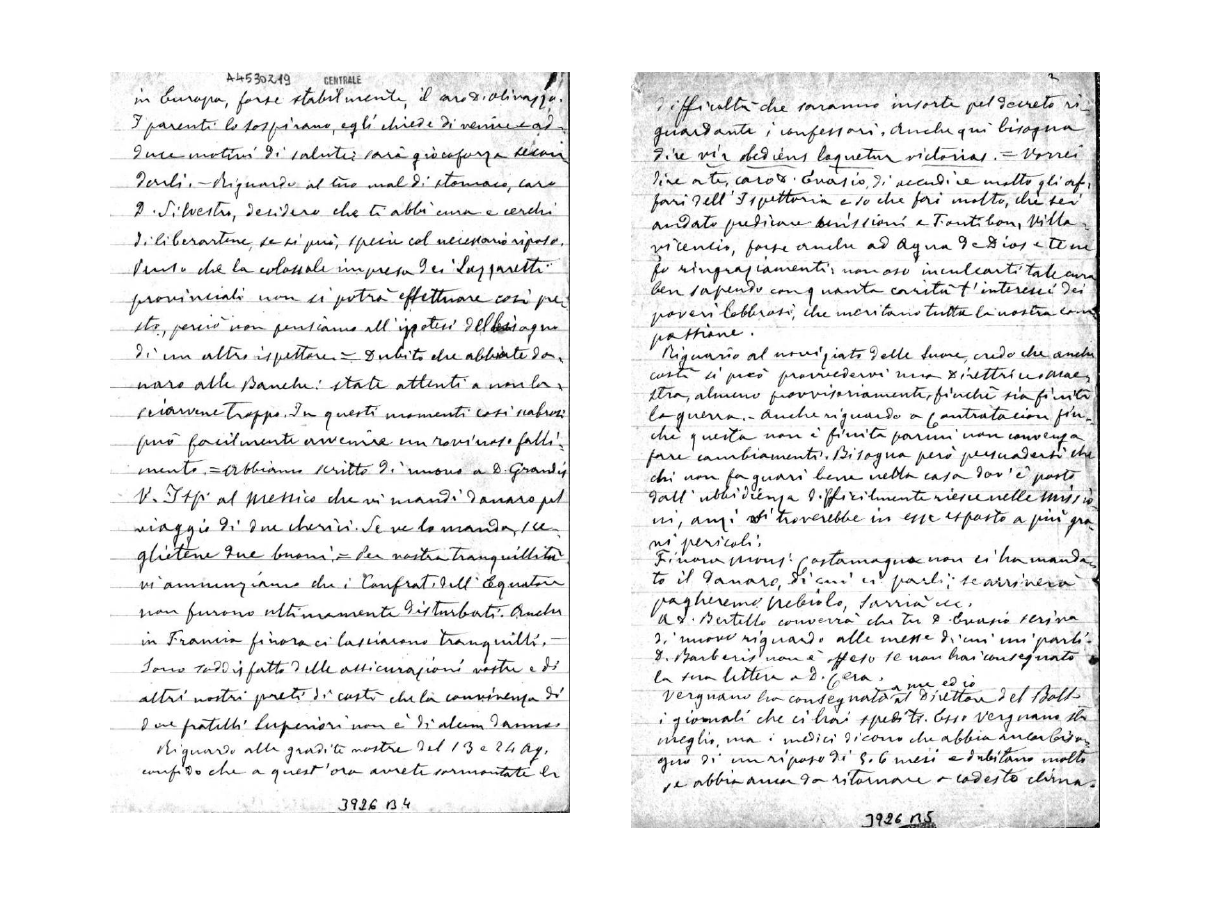 A4530219 CENTRALE
in Europa, forse stabilmente, il caro D. Olivazzo.
I parenti lo sospirano, egli chiede di venire e ad-
duce motivi di salute: sarà giocoforza secon
darli. - Riguardo al tuo mal di stomaco, caro
D. Silvestro, desidero che ti abbi cura e cerchi
di liberartene, se si può, specie col necessario riposo.
Penso che la colossale impresa dei Lazzaretti
provinciali non si potrà effettuare così pre-
sto, perciò non pensiamo all'ipotesi del bisogno
di un altro ispettore. = Dubito che abbiate da-
naro alle Banche: state attenti a non la-
sciarvene troppo. In questi momenti così scabrosi
può facilmente avvenire un rovinoso falli-
mento. = Abbiamo scritto di nuovo a D. Grandis
V. Isp. al Messico che vi mandi danaro pel
viaggio di due chierici. Se ve lo manda, sce-
glietene due buoni. = Per vostra tranquillità
vi annunziamo che i Confrat. dell'Equatore
non furono ultimamente disturbati. Anche
in Francia finora ci lasciarono tranquilli. -
Sono soddisfatto delle assicurazioni vostre e di
altri nostri preti di costà che la convivenza di
due fratelli Superiori non è di alcun danno.
Riguardo alle gradite vostre del 13 e 24 Ag.
confido che a quest'ora avrete sormontate le
3926 B4
2
difficoltà che saranno insorte pel decreto ri-
guardante i confessori. Anche qui bisogna
dire vir obediens loquetur victorias. = Vorrei
dire a te, caro D. Evasio, di accudire molto gli af-
fari dell'Ispettoria e so che fai molto, che sei
andato predicare missioni a Fontibon, Villa-
vicencio, forse anche ad Agua de Dios e te ne
fo ringraziamenti: non oso inculcarti tale cura
ben sapendo con quanta carità t'interessi dei
poveri lebbrosi, che meritano tutta la nostra com
passione.
Riguardo al noviziato delle Suore, credo che anche
costì si può provvedervi una Direttrice maes-
stra, almeno provvisoriamente, finchè sia finita
la guerra. - Anche riguardo a Contratacion fin-
chè questa non è finita parmi non convenga
fare cambiamenti. Bisogna però persuadersi che
chi non fa guari bene nella casa dov'è posto
dall'ubbidienza difficilmente riesce nelle missio
ni, anzi si troverebbe in esse esposto a più gra
vi pericoli.
Finora Mons. Costamagna non ci ha manda-
to il danaro, di cui ci parli; se arriverà
pagheremo Rebiolo, Sarrià ecc.
A D. Bertello converrà che tu D. Evasio scriva
di nuovo riguardo alle messe di cui mi parli.
D. Barberis non è offeso se non hai consegnato
la sua lettera a D. Cera.
Vergnano ha consegnato a me ed io al Direttore del Boll.
i giornali che ci hai spediti. Esso Vergnano sta
meglio, ma i medici dicono che abbia ancor biso-
gno di un riposo di 5 o 6 mesi e dubitano molto
se abbia ancora da ritornare a codesto clima.
3926 B5